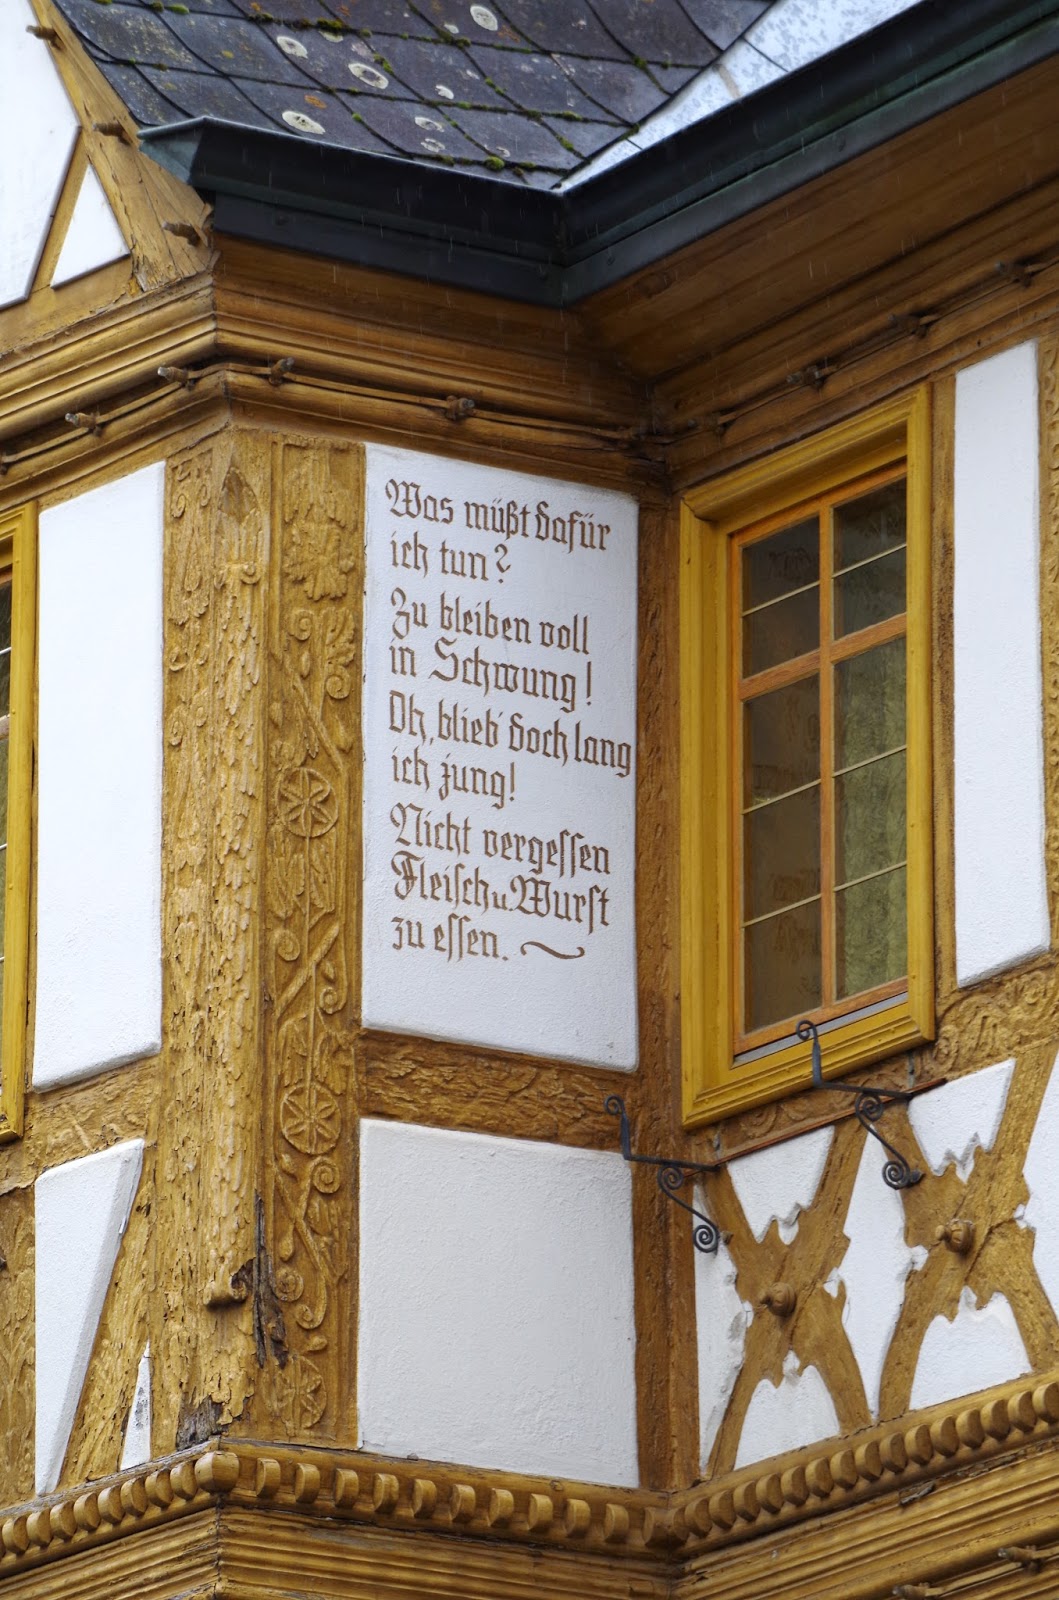 Was müßt dafür
ich tun?
Zu bleiben voll
in Schwung!
Oh, blieb' doch lang
ich jung!
Nicht vergessen
Fleisch u. Wurst
zu essen.